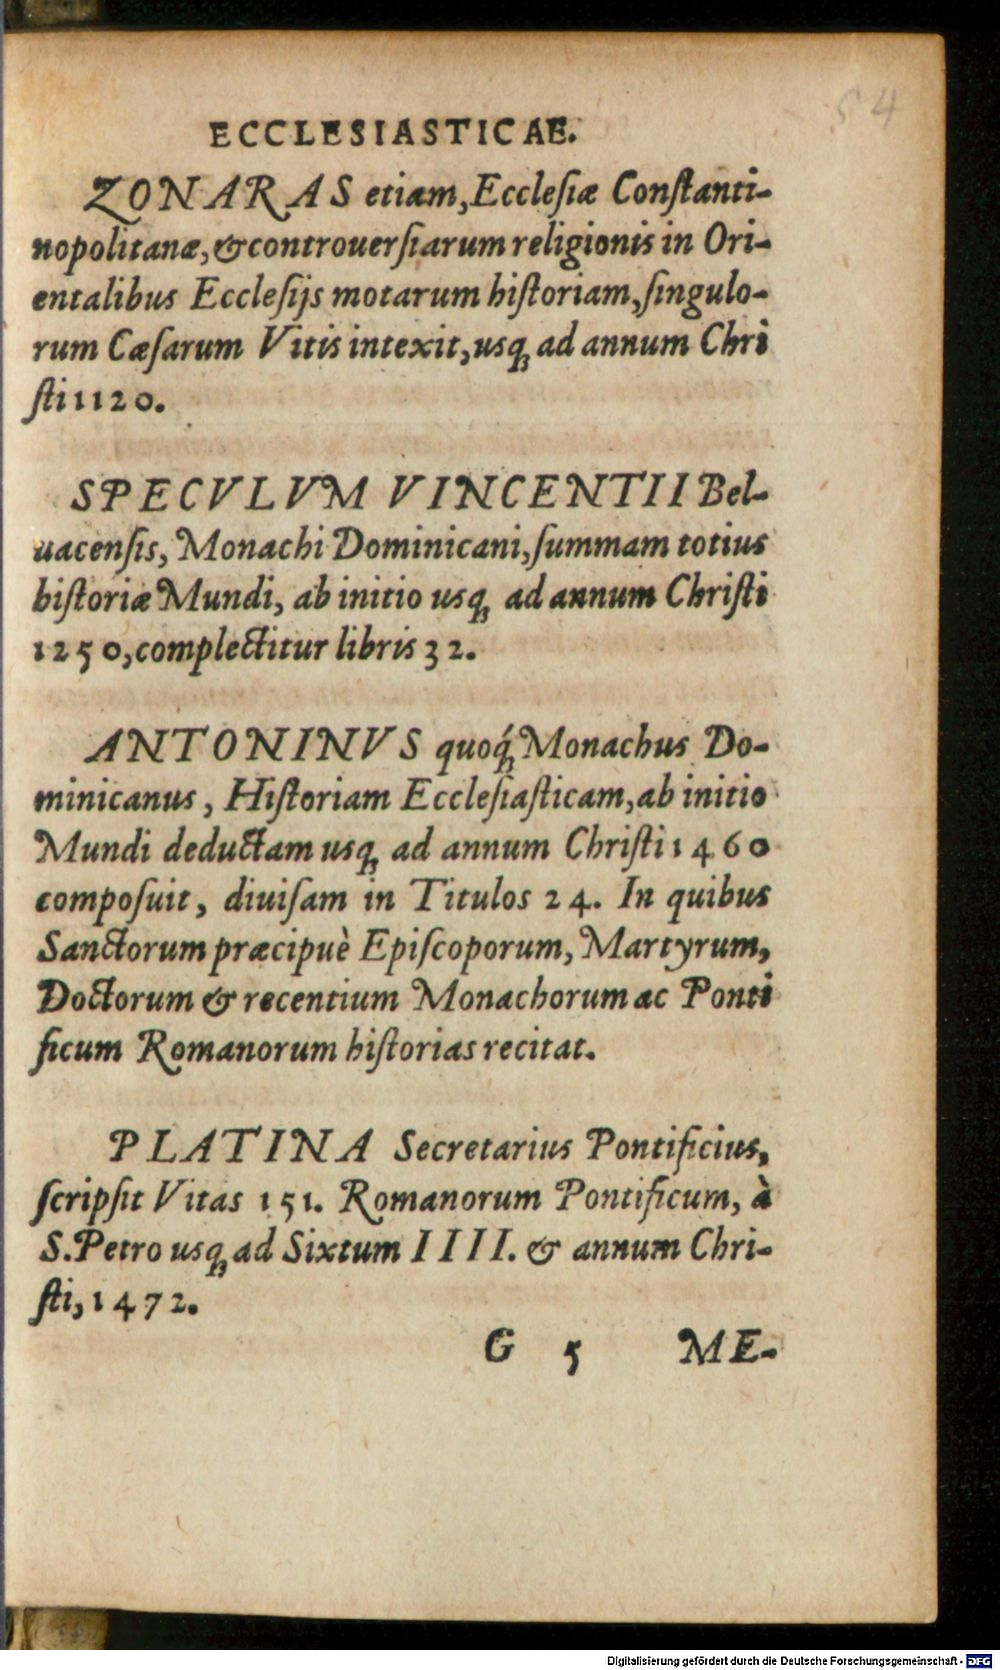 54
ECCLESIASTICAE.
ZONARAS etiam, Ecclesiæ Constanti-
nopolitanæ, & controuersiarum religionis in Ori-
entalibus Ecclesijs motarum historiam, singulo-
rum Cæsarum Vitis intexit, usq; ad annum Chri
sti 1120.
SPECVLVM VINCENTII Bel-
uacensis, Monachi Dominicani, summam totius
historiæ Mundi, ab initio usq; ad annum Christi
1250, complectitur libris 32.
ANTONINVS quoq́; Monachus Do-
minicanus, Historiam Ecclesiasticam, ab initio
Mundi deductam usq; ad annum Christi 1460
composuit, diuisam in Titulos 24. In quibus
Sanctorum præcipuè Episcoporum, Martyrum,
Doctorum & recentium Monachorum ac Ponti
ficum Romanorum historias recitat.
PLATINA Secretarius Pontificius,
scripsit Vitas 151. Romanorum Pontificum, à
S. Petro usq; ad Sixtum IIII. & annum Chri-
sti, 1472.
G 5 ME-
Digitalisierung gefördert durch die Deutsche Forschungsgemeinschaft - DFG